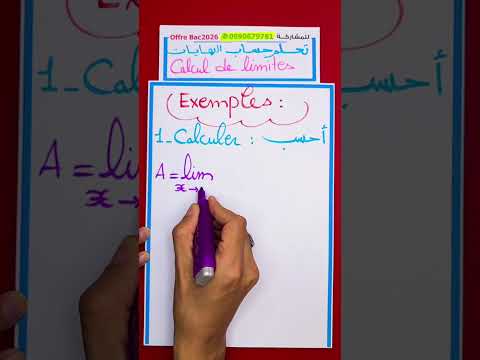 Offre Bac2026 0690679761 للمشاركة
تعلم حساب النهايات
Calcul de limites
Exemples :
1_ Calculer : أحسب
A = lim
x →